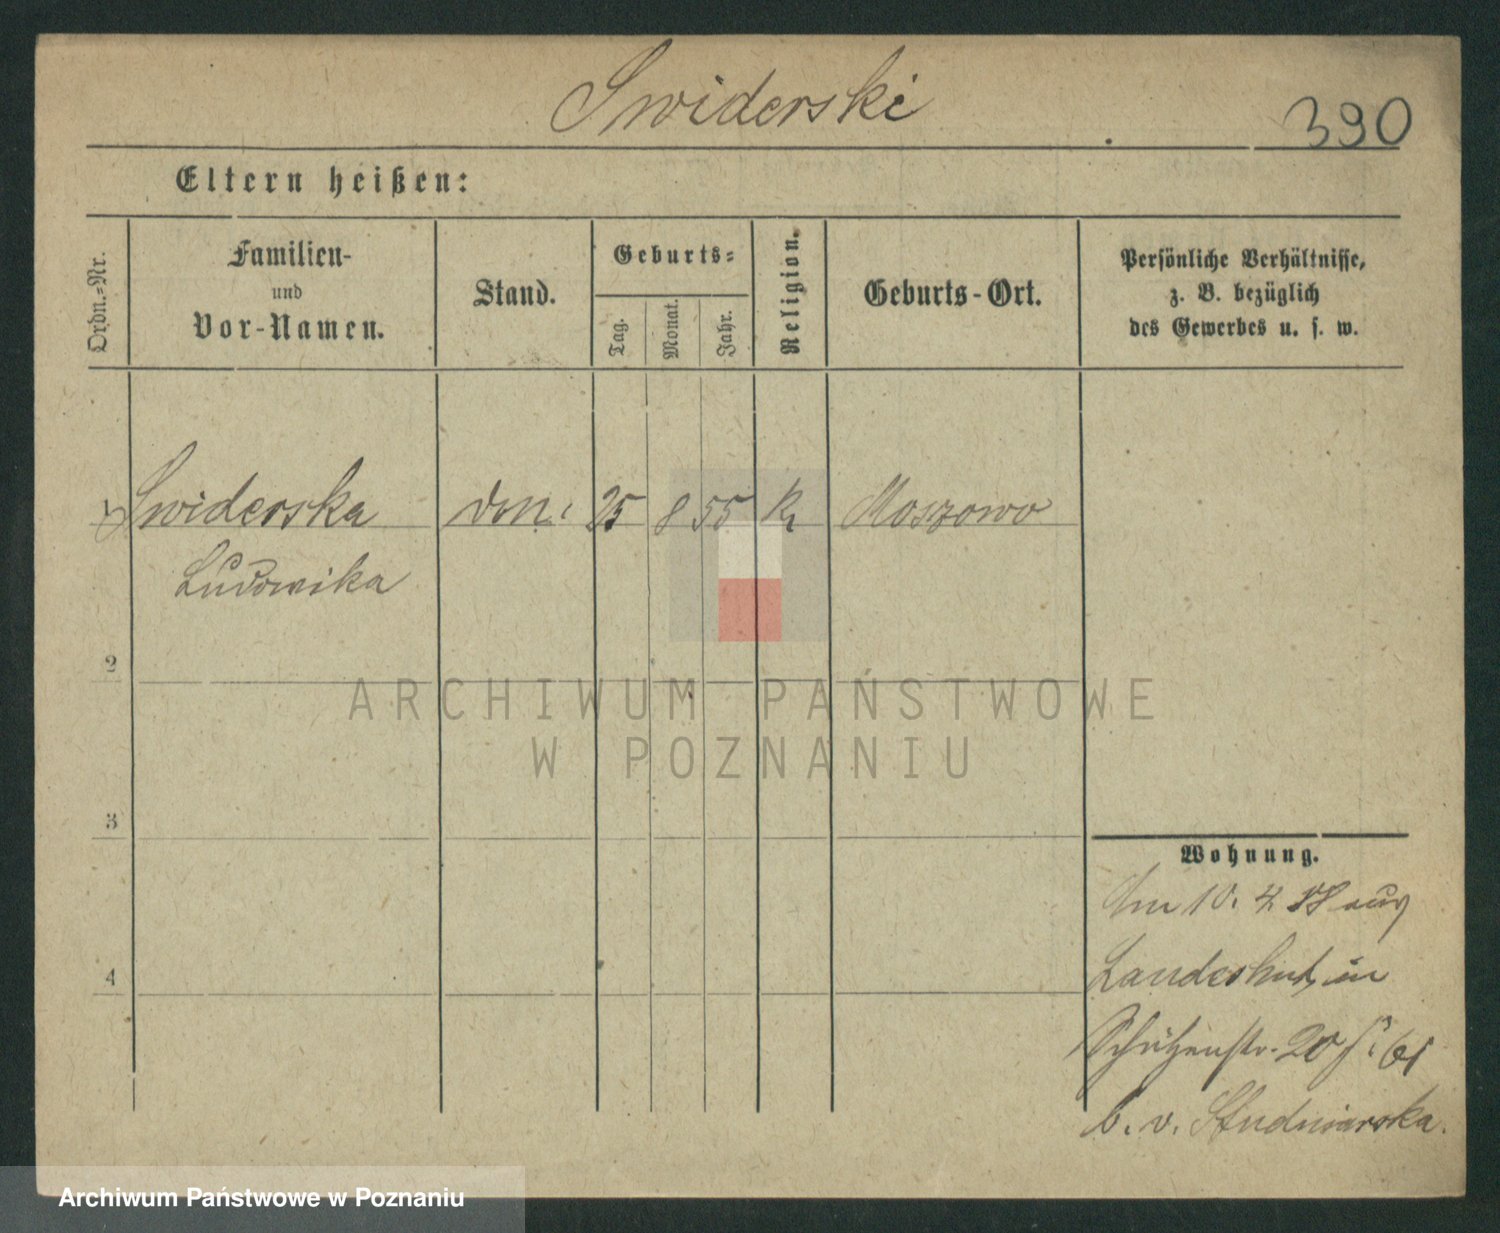 Swiderski
390
Eltern heißen:
Ordn.-Nr.
Familien-
und
Vor-Namen.
Stand.
Geburts-
Tag.
Monat.
Jahr.
Religion.
Geburts-Ort.
Persönliche Verhältnisse,
z. B. bezüglich
des Gewerbes u. s. w.
1 Swiderska 25 8 55 K Moszowo
Ludowika
2
ARCHIWUM PAŃSTWOWE
W POZNANIU
3
4
Wohnung.
10. 4.
Landeshut, in
Schützenstr. 20
b. v. Studniarska.
Archiwum Państwowe w Poznaniu